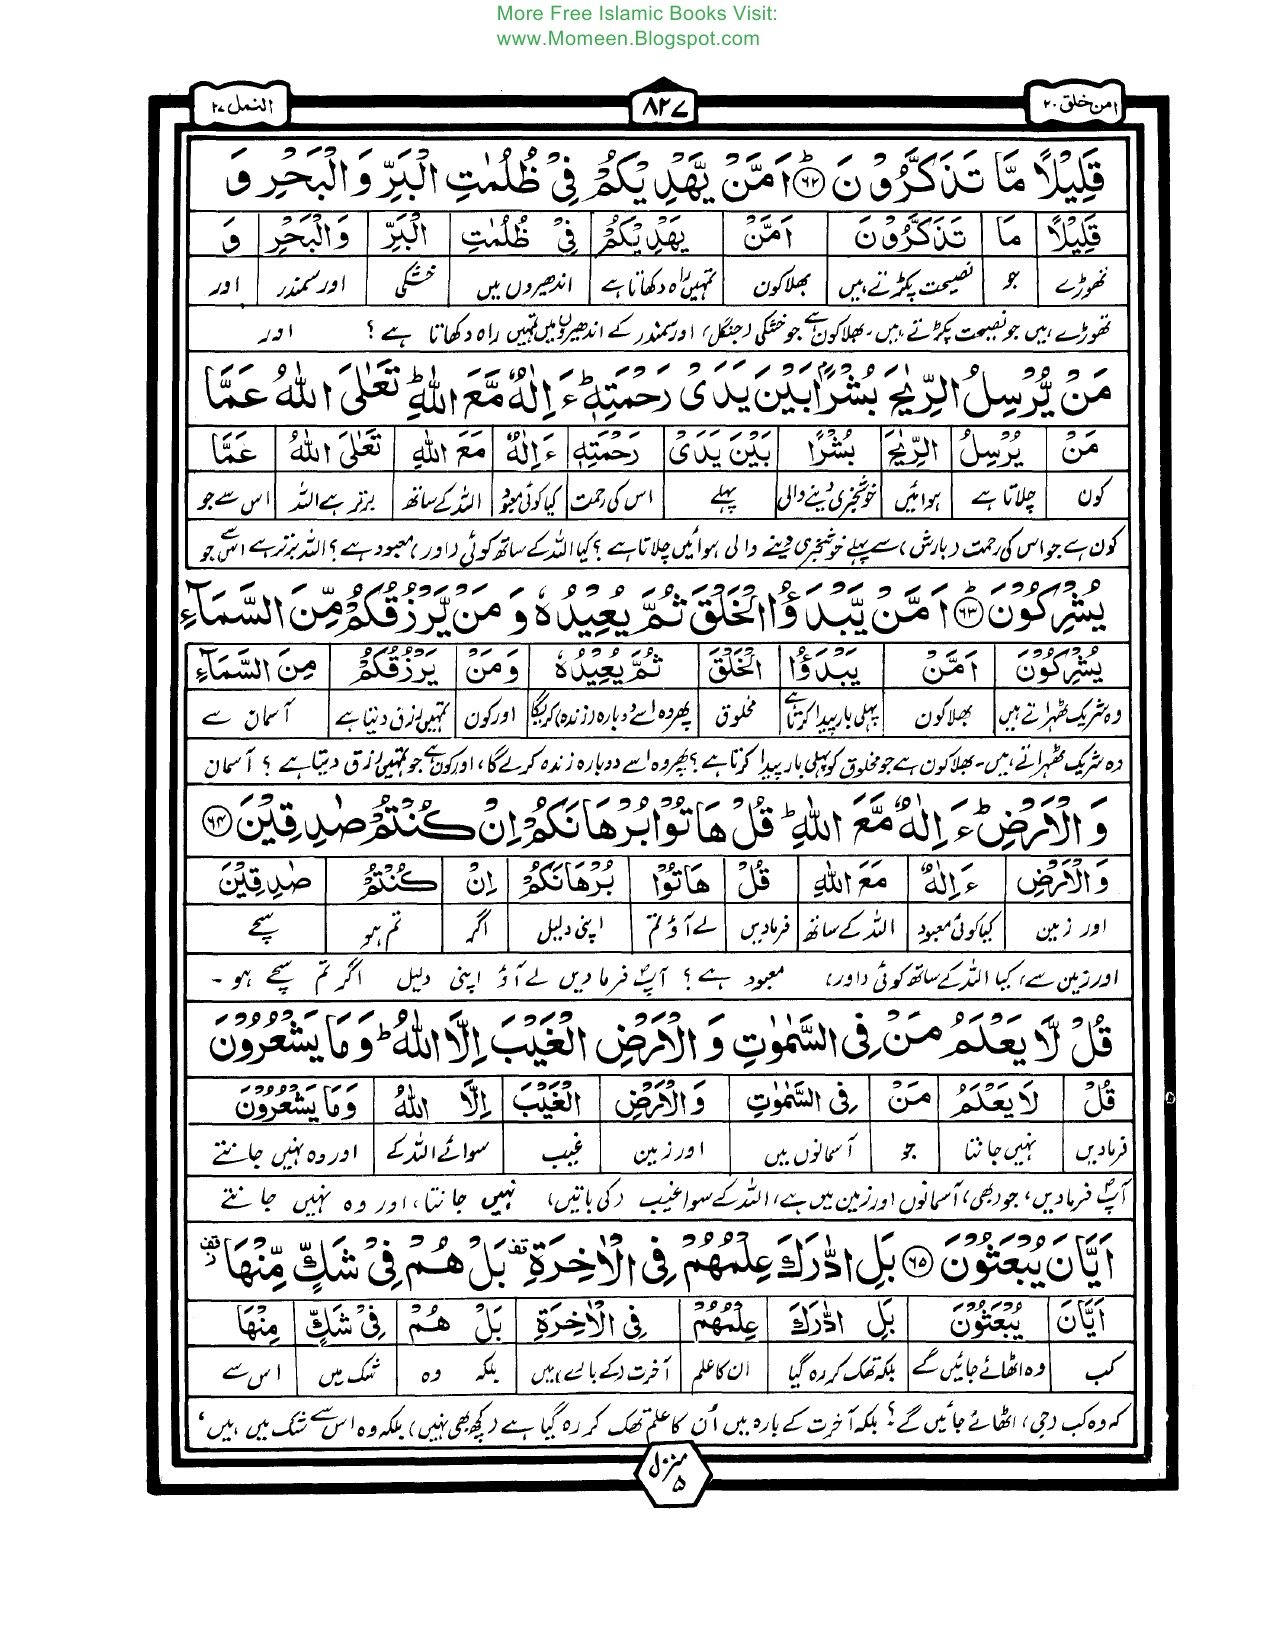 More Free Islamic Books Visit:
www.Momeen.Blogspot.com
امن خلق ۲۰
۸۲۷
النمل ۲۷
قَلِيْلًا مَّا تَذَكَّرُوْنَ ؕ﴿۶۲﴾ اَمَّنْ يَّهْدِيْكُمْ فِيْ ظُلُمٰتِ الْبَرِّ وَالْبَحْرِ وَ
قَلِيْلًا مَا تَذَكَّرُوْنَ اَمَّنْ يَهْدِيْكُمْ فِيْ ظُلُمٰتِ الْبَرِّ وَالْبَحْرِ وَ
تھوڑے جو نصیحت پکڑتے ہیں بھلا کون تمہیں راہ دکھاتا ہے اندھیروں میں خشکی اور سمندر اور
تھوڑے ہیں جو نصیحت پکڑتے ہیں۔ بھلا کون ہے جو خشکی (جنگل) اور سمندر کے اندھیروں میں تمہیں راہ دکھاتا ہے؟ اور
مَنْ يُّرْسِلُ الرِّيٰحَ بُشْرًاۢ بَيْنَ يَدَيْ رَحْمَتِهٖ ؕ ءَ اِلٰهٌ مَّعَ اللّٰهِ ؕ تَعٰلَى اللّٰهُ عَمَّا
مَنْ يُرْسِلُ الرِّيٰحَ بُشْرًا بَيْنَ يَدَيْ رَحْمَتِهٖ ءَ اِلٰهٌ مَعَ اللّٰهِ تَعٰلَى اللّٰهُ عَمَّا
کون چلاتا ہے ہوائیں خوشخبری دینے والی پہلے اس کی رحمت کیا کوئی معبود اللہ کے ساتھ برتر ہے اللہ اس سے جو
کون ہے جو اس کی رحمت (بارش) سے پہلے خوشخبری دینے والی ہوائیں چلاتا ہے؟ کیا اللہ کے ساتھ کوئی (اور) معبود ہے؟ اللہ برتر ہے اس سے جو
يُشْرِكُوْنَ ؕ﴿۶۳﴾ اَمَّنْ يَّبْدَؤُا الْخَلْقَ ثُمَّ يُعِيْدُهٗ وَ مَنْ يَّرْزُقُكُمْ مِّنَ السَّمَآءِ
يُشْرِكُوْنَ اَمَّنْ يَبْدَؤُا الْخَلْقَ ثُمَّ يُعِيْدُهٗ وَ مَنْ يَرْزُقُكُمْ مِنَ السَّمَآءِ
وہ شریک ٹھہراتے ہیں بھلا کون پہلی بار پیدا کرتا ہے مخلوق پھر وہ اسے دوبارہ (زندہ) کریگا اور کون تمہیں رزق دیتا ہے آسمان سے
وہ شریک ٹھہراتے ہیں۔ بھلا کون ہے جو مخلوق کو پہلی بار پیدا کرتا ہے؟ پھر وہ اسے دوبارہ زندہ کرے گا، اور کون ہے جو تمہیں رزق دیتا ہے؟ آسمان
وَ الْاَرْضِ ؕ ءَ اِلٰهٌ مَّعَ اللّٰهِ ؕ قُلْ هَاتُوْا بُرْهَانَكُمْ اِنْ كُنْتُمْ صٰدِقِيْنَ ﴿۶۴﴾
وَ الْاَرْضِ ءَ اِلٰهٌ مَعَ اللّٰهِ قُلْ هَاتُوْا بُرْهَانَكُمْ اِنْ كُنْتُمْ صٰدِقِيْنَ
اور زمین کیا کوئی معبود اللہ کے ساتھ فرمادیں لے آؤ تم اپنی دلیل اگر تم ہو سچے
اور زمین سے، کیا اللہ کے ساتھ کوئی (اور) معبود ہے؟ آپؐ فرمادیں لے آؤ اپنی دلیل اگر تم سچے ہو۔
قُلْ لَّا يَعْلَمُ مَنْ فِي السَّمٰوٰتِ وَ الْاَرْضِ الْغَيْبَ اِلَّا اللّٰهُ ؕ وَ مَا يَشْعُرُوْنَ
قُلْ لَا يَعْلَمُ مَنْ فِي السَّمٰوٰتِ وَ الْاَرْضِ الْغَيْبَ اِلَّا اللّٰهُ وَمَا يَشْعُرُوْنَ
فرمادیں نہیں جانتا جو آسمانوں میں اور زمین غیب سوائے اللہ کے اور وہ نہیں جانتے
آپؐ فرمادیں، جو (بھی) آسمانوں اور زمین میں ہے، اللہ کے سوا غیب (کی باتیں) نہیں جانتا، اور وہ نہیں جانتے
اَيَّانَ يُبْعَثُوْنَ ﴿۶۵﴾ بَلِ ادّٰرَكَ عِلْمُهُمْ فِي الْاٰخِرَةِ قف بَلْ هُمْ فِيْ شَكٍّ مِّنْهَا قف
اَيَّانَ يُبْعَثُوْنَ بَلِ ادّٰرَكَ عِلْمُهُمْ فِي الْاٰخِرَةِ بَلْ هُمْ فِيْ شَكٍّ مِنْهَا
کب وہ اٹھائے جائیں گے بلکہ تھک کر رہ گیا ان کا علم آخرت (کے بارے) میں بلکہ وہ شک میں اس سے
کہ وہ کب (جی) اٹھائے جائیں گے؟ بلکہ آخرت کے بارہ میں اُن کا علم تھک کر رہ گیا ہے (کچھ بھی نہیں) بلکہ وہ اس سے شک میں ہیں،
منزل ۵